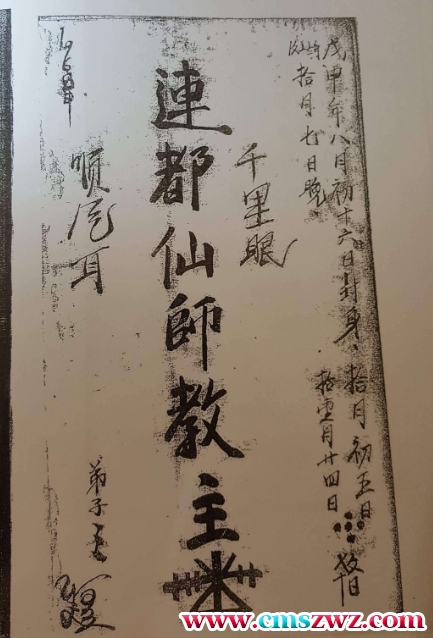 戊申年八月初十六日封身、拾月初五日
拾月七日晚、
拾壹月廿四日
千里眼
連都仙師教主
順风耳
弟子
www.cmszwz.com